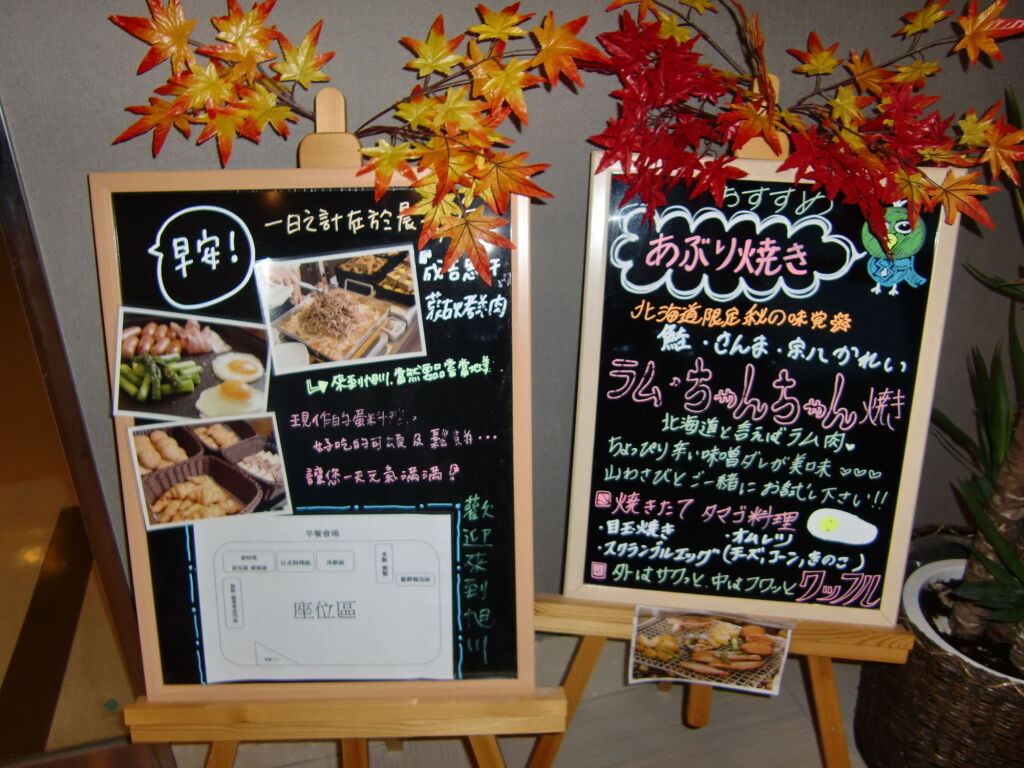 早安!
一日之計在於晨
成吉思汗
蒙古烤肉
來到旭川,當然要品嘗當地美
現作的蛋料理,
好吃的可頌及鬆餅…
讓您一天元氣滿滿!
歡迎來到旭川
早餐會場
日式料理區
冷飲區
座位區
おすすめ
あぶり焼き
北海道限定秋の味覚
鮭・さんま・宗八かれい
ラム・ちゃんちゃん焼き
北海道と言えばラム肉♥
ちょっぴり辛い味噌ダレが美味♡♡♡
山わさびとご一緒にお試し下さい!!
焼きたて タマゴ料理
・目玉焼き ・オムレツ
・スクランブルエッグ(チーズ,コーン,きのこ)
外はサクッと、中はフワッとワッフル